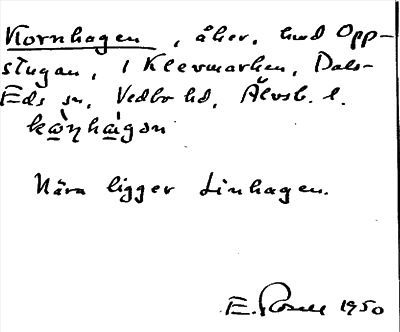 Kornhagen, åker, hmd Opp-
stugan, i Klevmarken, Dals-
Eds sn, Vedbo hd, Älvsb. l.
kɷ̀ŋhàgən
Nära ligger Linhagen.
E. Rosell 1950